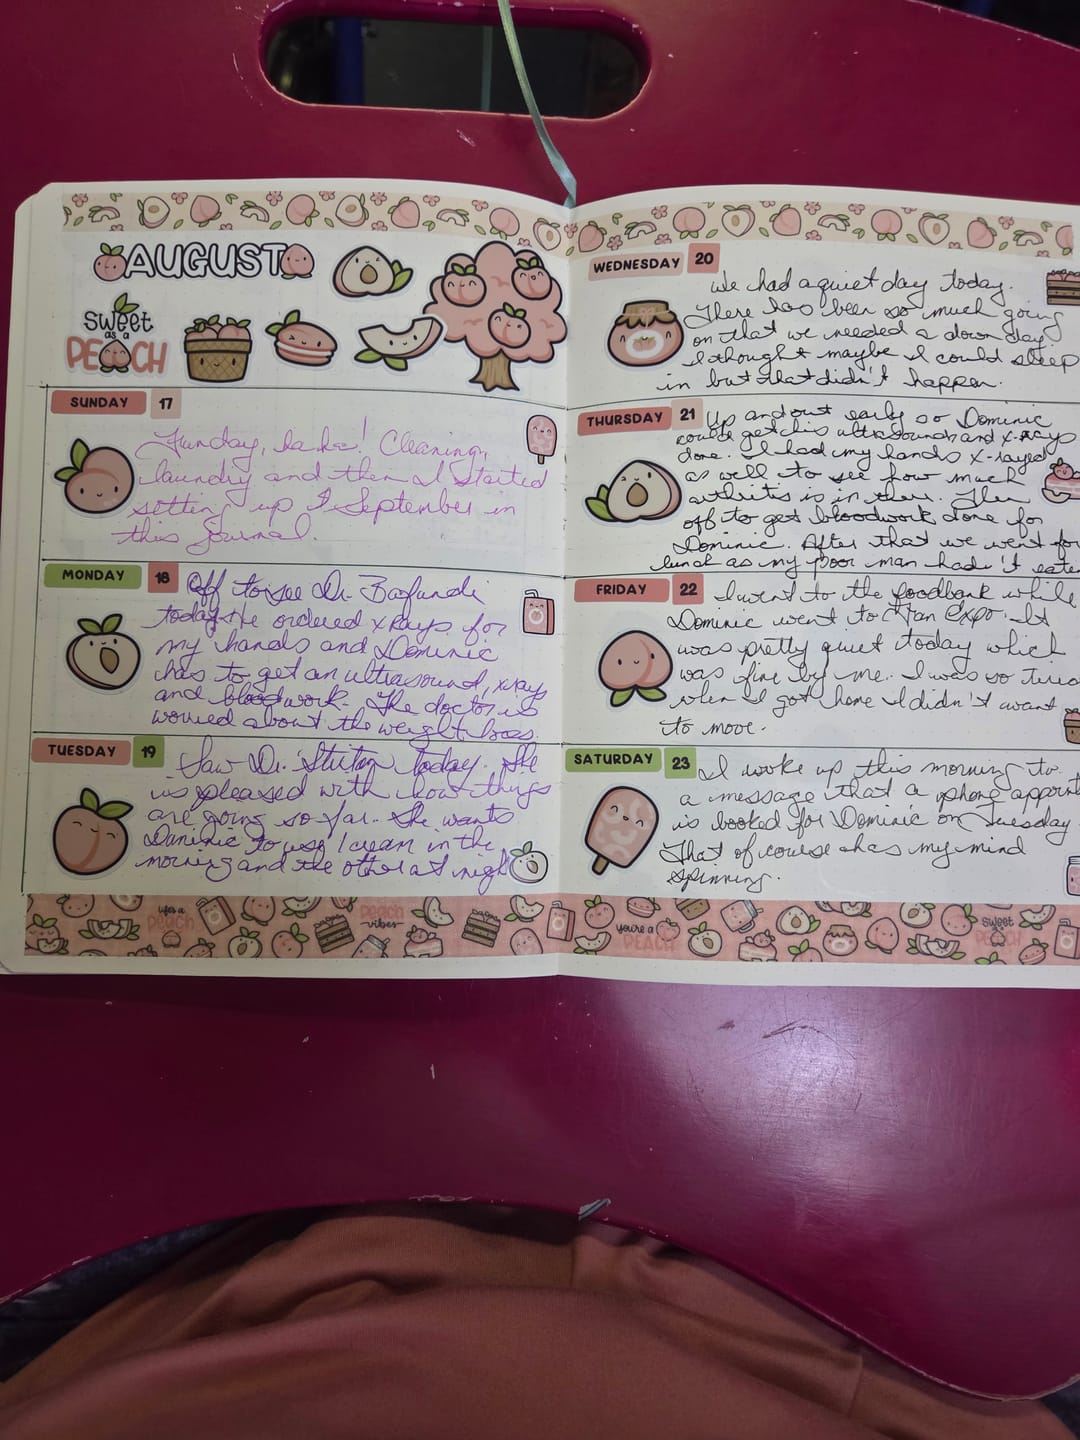 AUGUST
Sweet
as a
PEACH
SUNDAY 17
Funday, ha ha! Cleaning,
laundry and then I started
setting up September in
this Journal.
MONDAY 18
Off to see Dr.
today. He ordered x rays for
my hands and Dominic
has to get an ultrasound, xrays
and bloodwork. The doctor is
worried about the weight loss.
TUESDAY 19
Saw Dr. today. She
is pleased with how things
are going so far. She wants
Dominic to use 1 cream in the
morning and the other at nigh
WEDNESDAY 20
We had a quiet day today.
There has been so much going
on that we needed a down day.
I thought maybe I could sleep
in but that didn't happen.
THURSDAY 21
Up and out early so Dominic
could get his ultrasound and x-rays
done. I had my hands x-rayed
as well to see how much
arthritis is in them. Then
off to get bloodwork done for
Dominic. After that we went for
lunch as my poor man hadn't eate
FRIDAY 22
I went to the foodbank while
Dominic went to Fan Expo. It
was pretty quiet today which
was fine by me. I was so tire
when I got home I didn't want
to move.
SATURDAY 23
I woke up this morning to
a message that a phone appoint
is booked for Dominic on Tuesday
That of course has my mind
spinning.
life's a
PEACH
PEACH
vibes
you're a
PEACH
Sweet
PEACH